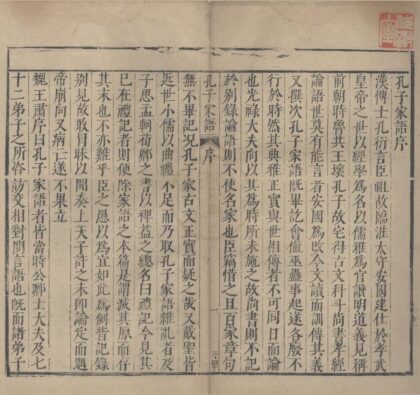 孔子家語序
漢博士孔衍言臣祖故臨淮太守安國建仕於孝武
皇帝之世以經學爲名以儒雅爲官讚明道義見稱
前朝時魯共王壞孔子故宅得古文科斗尚書孝經
論語世莫有能言者安國爲改今文讀而訓傳其義
又撰次孔子家語既畢訖會值巫蠱事起遂各廢不
行於時然其典雅正實與世相傳者不可同日而論
也光祿大夫向以其爲時所未施之故尚書則不記
於別錄論語則不使名家也臣竊惜之且百家章句
孔子家語 序
無不畢記況孔子家古文正實而疑之哉又戴聖皆
近世小儒以曲禮不足而乃取孔子家語雜亂者及
子思孟軻荀卿之書以裨益之總名曰禮記今見其
已在禮記者則便除家語之本篇是謂滅其原而存
其末也不亦難乎臣之愚以爲宜如此爲例皆記錄
別見故敢冒昧以聞奏上天子許之未即論定而遇
帝崩向又病亡遂不果立
魏王肅序曰孔子家語者皆當時公卿士大夫及七
十二弟子之所咨訪交相對問言語也既而諸弟子